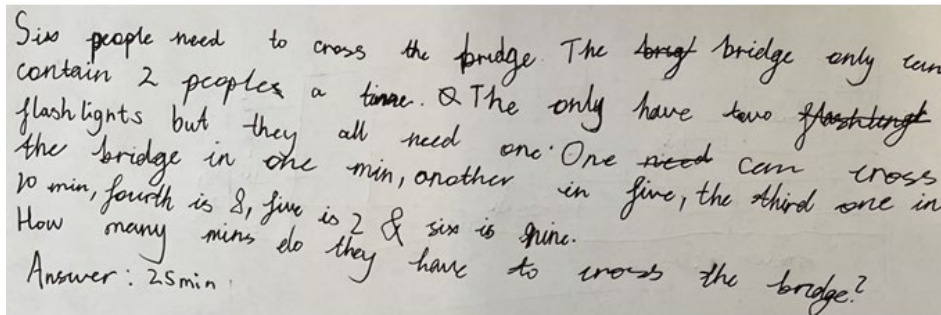 Six people need to cross the bridge. The brigt bridge only can
contain 2 peoples a time. The only have two flashlingt
flashlights but they all need one. One need can cross
the bridge in one min, another in five, the third one in
10 min, fourth is 8, five is 2 & six is nine.
How many mins do they have to cross the bridge?
Answer: 25min